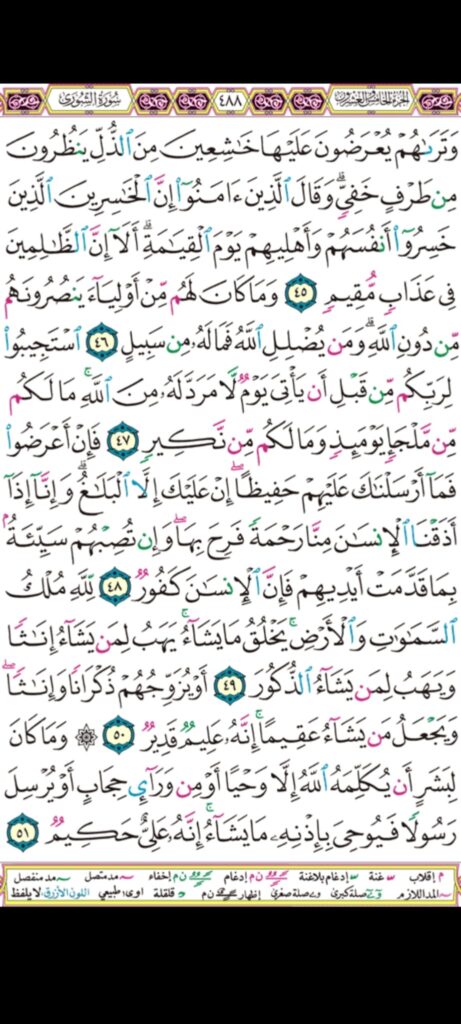 سُورَةُ الشُّورَىٰ ٤٨٨ الجزء الخامس والعشرون
وَتَرَىٰهُمْ يُعْرَضُونَ عَلَيْهَا خَٰشِعِينَ مِنَ ٱلذُّلِّ يَنظُرُونَ
مِن طَرْفٍ خَفِيٍّ ۗ وَقَالَ ٱلَّذِينَ ءَامَنُوٓا۟ إِنَّ ٱلْخَٰسِرِينَ ٱلَّذِينَ
خَسِرُوٓا۟ أَنفُسَهُمْ وَأَهْلِيهِمْ يَوْمَ ٱلْقِيَٰمَةِ ۗ أَلَآ إِنَّ ٱلظَّٰلِمِينَ
فِى عَذَابٍ مُّقِيمٍ ٤٥ وَمَا كَانَ لَهُم مِّنْ أَوْلِيَآءَ يَنصُرُونَهُم
مِّن دُونِ ٱللَّهِ ۗ وَمَن يُضْلِلِ ٱللَّهُ فَمَا لَهُۥ مِن سَبِيلٍ ٤٦ ٱسْتَجِيبُوا۟
لِرَبِّكُم مِّن قَبْلِ أَن يَأْتِىَ يَوْمٌ لَّا مَرَدَّ لَهُۥ مِنَ ٱللَّهِ ۚ مَا لَكُم
مِّن مَّلْجَإٍ يَوْمَئِذٍ وَمَا لَكُم مِّن نَّكِيرٍ ٤٧ فَإِنْ أَعْرَضُوا۟
فَمَآ أَرْسَلْنَٰكَ عَلَيْهِمْ حَفِيظًا ۖ إِنْ عَلَيْكَ إِلَّا ٱلْبَلَٰغُ ۗ وَإِنَّآ إِذَآ
أَذَقْنَا ٱلْإِنسَٰنَ مِنَّا رَحْمَةً فَرِحَ بِهَا ۖ وَإِن تُصِبْهُمْ سَيِّئَةٌۢ
بِمَا قَدَّمَتْ أَيْدِيهِمْ فَإِنَّ ٱلْإِنسَٰنَ كَفُورٌ ٤٨ لِّلَّهِ مُلْكُ
ٱلسَّمَٰوَٰتِ وَٱلْأَرْضِ ۚ يَخْلُقُ مَا يَشَآءُ ۚ يَهَبُ لِمَن يَشَآءُ إِنَٰثًا
وَيَهَبُ لِمَن يَشَآءُ ٱلذُّكُورَ ٤٩ أَوْ يُزَوِّجُهُمْ ذُكْرَانًا وَإِنَٰثًا ۖ
وَيَجْعَلُ مَن يَشَآءُ عَقِيمًا ۚ إِنَّهُۥ عَلِيمٌ قَدِيرٌ ٥٠ ۞ وَمَا كَانَ
لِبَشَرٍ أَن يُكَلِّمَهُ ٱللَّهُ إِلَّا وَحْيًا أَوْ مِن وَرَآئِ حِجَابٍ أَوْ يُرْسِلَ
رَسُولًا فَيُوحِىَ بِإِذْنِهِۦ مَا يَشَآءُ ۚ إِنَّهُۥ عَلِىٌّ حَكِيمٌ ٥١
م إقلاب غنة إدغام بلاغنة ن م إدغام ن م إخفاء مد متصل مد منفصل
المد اللازم صلة كبرى صلة صغرى إظهار ن م قلقلة اوى: طبيعي اللون الأزرق: لا يلفظ